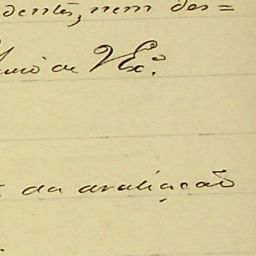 dentes, nem des=
de V Exª.
da avaliação